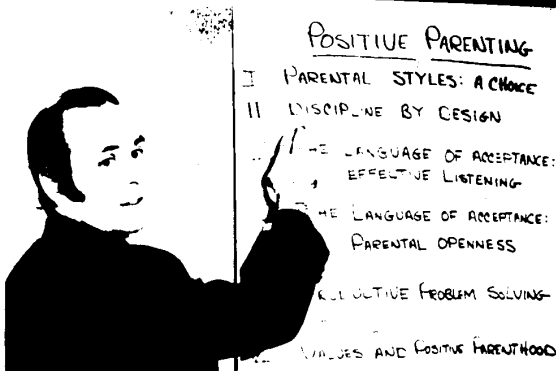 POSITIVE PARENTING
I PARENTAL STYLES: A CHOICE
II DISCIPLINE BY DESIGN
THE LANGUAGE OF ACCEPTANCE:
EFFECTIVE LISTENING
THE LANGUAGE OF ACCEPTANCE:
PARENTAL OPENNESS
PROBLEM SOLVING
VALUES AND POSITIVE PARENTHOOD